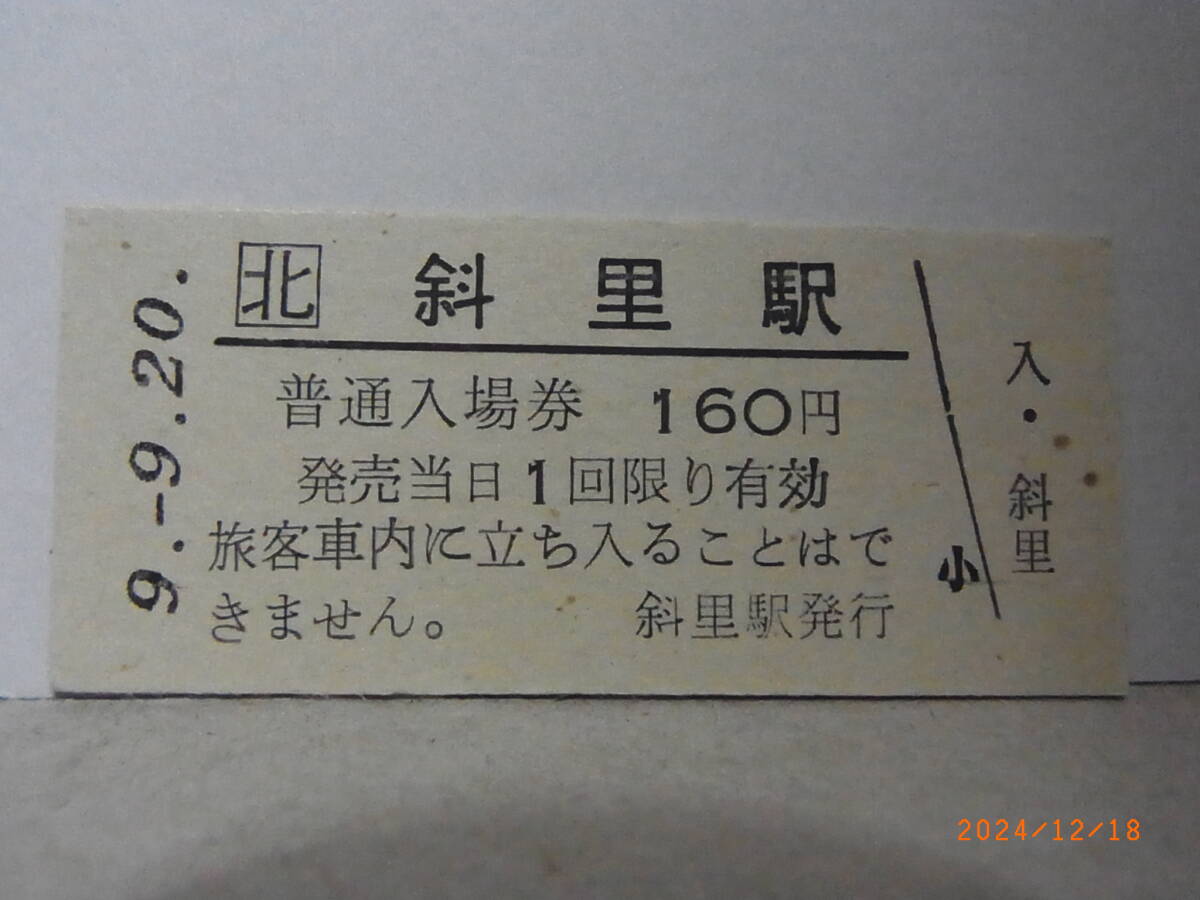 9.-9.20.
北 斜里駅
普通入場券 160円
発売当日1回限り有効
旅客車内に立ち入ることはで
きません。 斜里駅発行
小
入・斜里
2024/12/18